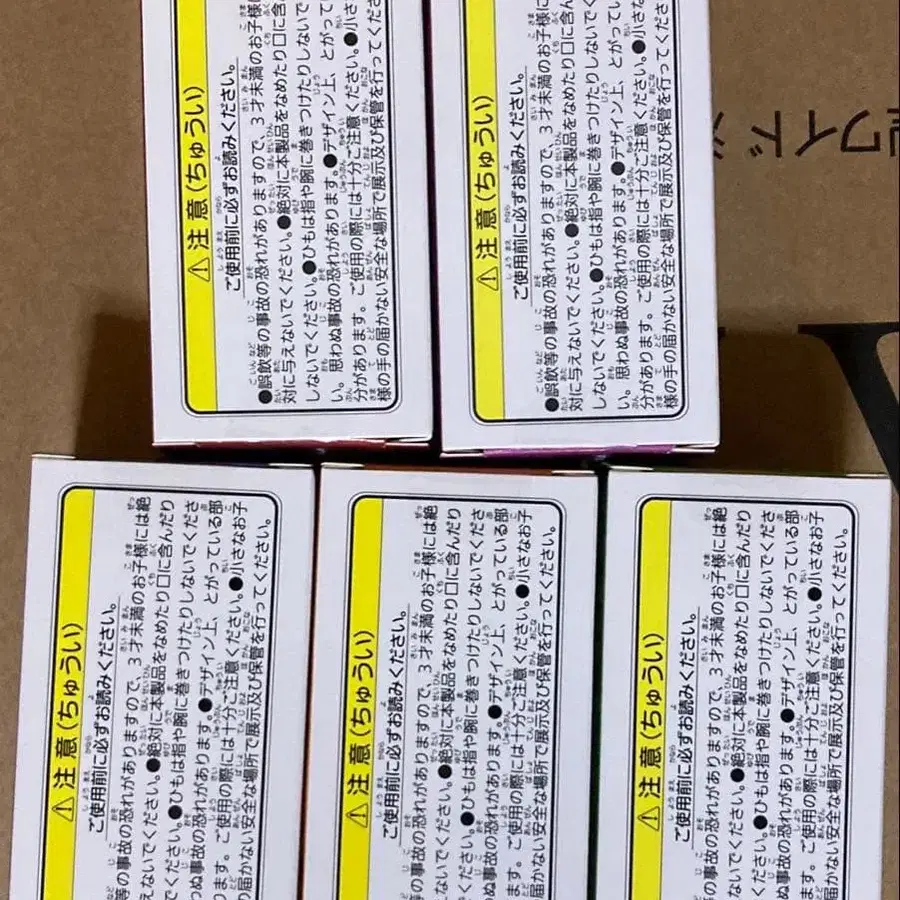 ⚠注意(ちゅうい)
ご使用前に必ずお読みください。
●誤飲等の事故の恐れがありますので、3才未満のお子様に
対に与えないでください。●絶対に本製品をなめたり口に含ん
しないでください。●ひもは指や腕に巻きつけたりしないで
い。思わぬ事故の恐れがあります。●デザイン上、とがってい
分があります。ご使用の際には十分ご注意ください。●小さ
様の手の届かない安全な場所で展示及び保管を行ってくださ
⚠注意(ちゅうい)
ご使用前に必ずお読みください。
●誤飲等の事故の恐れがありますので、3才未満のお子様に
対に与えないでください。●絶対に本製品をなめたり口に含ん
しないでください。●ひもは指や腕に巻きつけたりしないで
い。思わぬ事故の恐れがあります。●デザイン上、とがってい
分があります。ご使用の際には十分ご注意ください。●小さ
様の手の届かない安全な場所で展示及び保管を行ってくださ
ワイド
⚠注意(ちゅうい)
ご使用前に必ずお読みください。
等の事故の恐れがありますので、3才未満のお子様には絶
えないでください。●絶対に本製品をなめたり口に含んだり
でください。●ひもは指や腕に巻きつけたりしないでくださ
わぬ事故の恐れがあります。●デザイン上、とがっている部
ます。ご使用の際には十分ご注意ください。●小さなお子
届かない安全な場所で展示及び保管を行ってください。
⚠注意(ちゅうい)
ご使用前に必ずお読みください。
等の事故の恐れがありますので、3才未満のお子様には絶
えないでください。●絶対に本製品をなめたり口に含んだり
でください。●ひもは指や腕に巻きつけたりしないでくださ
わぬ事故の恐れがあります。●デザイン上、とがっている部
ます。ご使用の際には十分ご注意ください。●小さなお子
届かない安全な場所で展示及び保管を行ってください。
⚠注意(ちゅうい)
ご使用前に必ずお読みください。
等の事故の恐れがありますので、3才未満のお子様には絶
えないでください。●絶対に本製品をなめたり口に含んだり
でください。●ひもは指や腕に巻きつけたりしないでくださ
わぬ事故の恐れがあります。●デザイン上、とがっている部
ます。ご使用の際には十分ご注意ください。●小さなお子
届かない安全な場所で展示及び保管を行ってください。